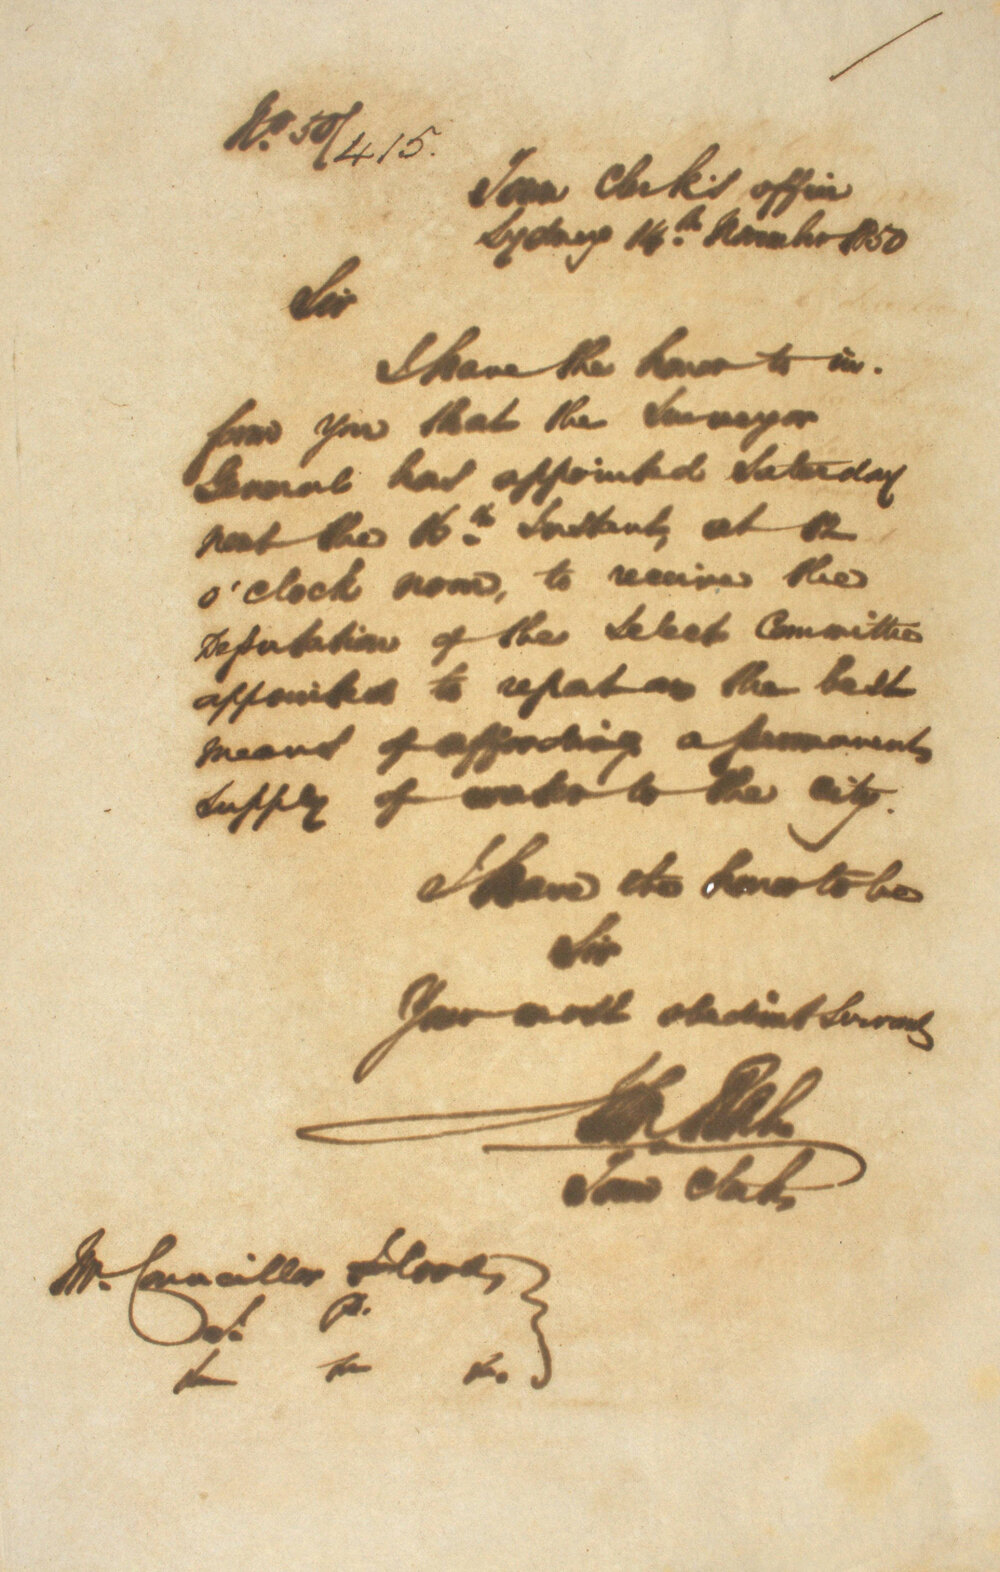 No. 50/415.
Town Clerk's office
Sydney 14th November 1850
Sir
I have the honor to in-
form you that the Surveyor
General has appointed Saturday
next the 16th Instant, at 12
o'clock noon, to receive the
Deputation of the Select Committee
appointed to report on the best
means of affording a permanent
supply of water to the city.
I have the honor to be
Sir
Your most obedient Servant
Town Clerk
Mr. Councillor Flood,